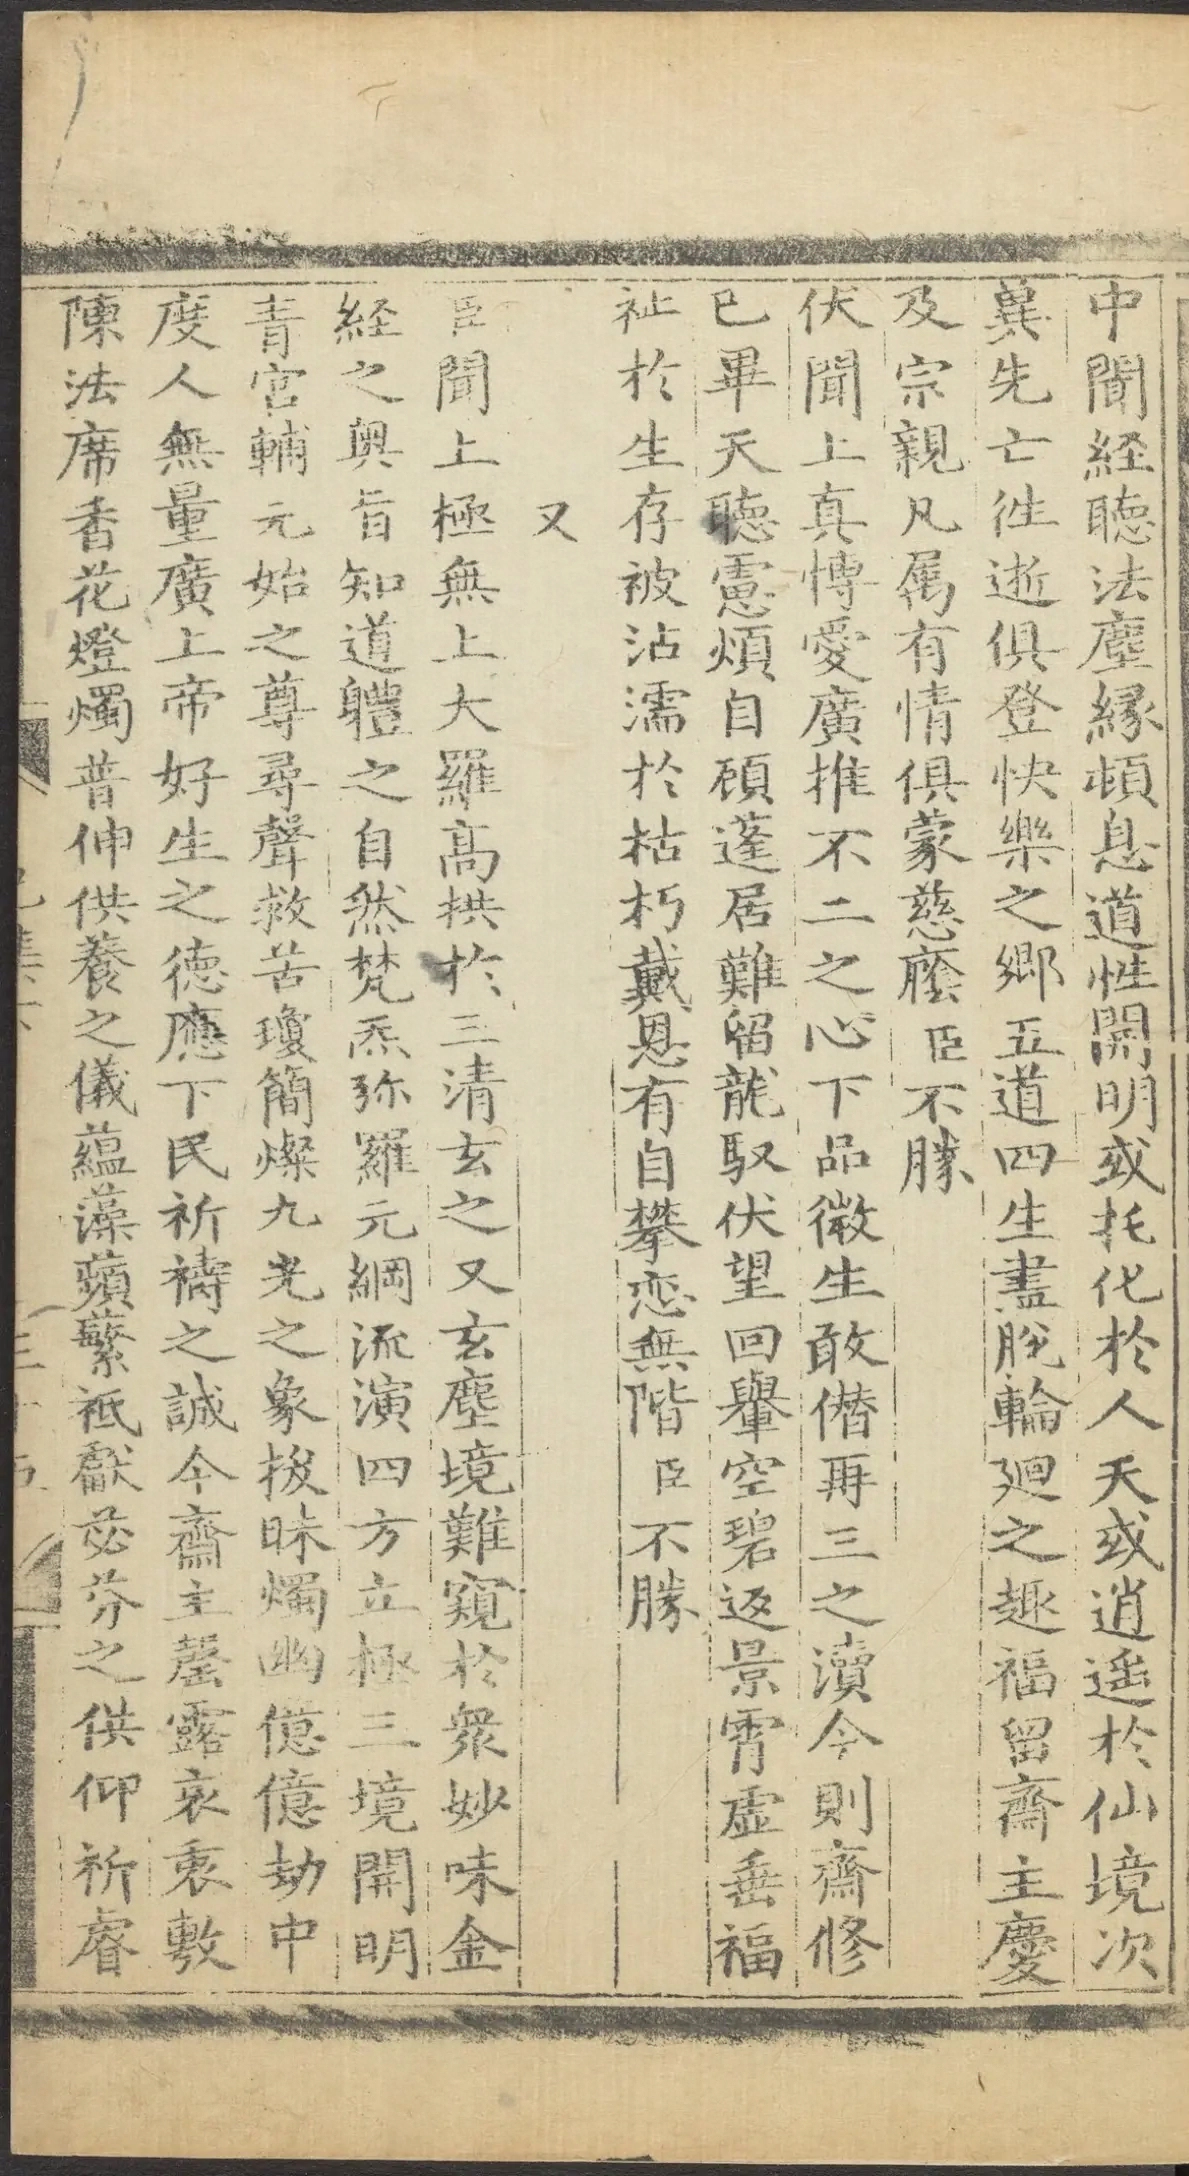 中聞経聽法塵縁頓息道性開明或托化於人天或逍遥於仙境次
冀先亡徃逝俱登快樂之郷五道四生盡脫輪廻之趣福留齋主慶
及宗親凡属有情俱蒙慈廕臣不勝
伏聞上真愽愛廣推不二之心下品微生敢僣再三之瀆今則齋修
已畢天聽慮煩自碩蓬居難留龍馭伏望回轝空碧返景霄虚垂福
祉於生存被沾濡於枯朽戴恩有自攀恋無階臣不勝
又
臣聞上極無上大羅髙拱於三清玄之又玄塵境難窺於衆妙味金
経之奥旨知道軆之自然梵炁弥羅元綱流演四方立極三境開明
青宮輔元始之尊尋聲救苦瓊簡燦九光之象拔昧燭幽億億劫中
度人無量廣上帝好生之德應下民祈禱之誠今齋主罄露哀衷敷
陳法席香花燈燭普伸供養之儀蕴藻蘋蘩祗獻苾芬之供仰祈睿